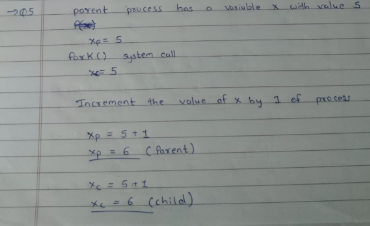 →Q5 parent process has a variable x with value 5
xp = 5
fork() system call
xc = 5
Increment the value of x by 1 of process
xp = 5 + 1
xp = 6 (Parent)
xc = 5 + 1
xc = 6 (child)